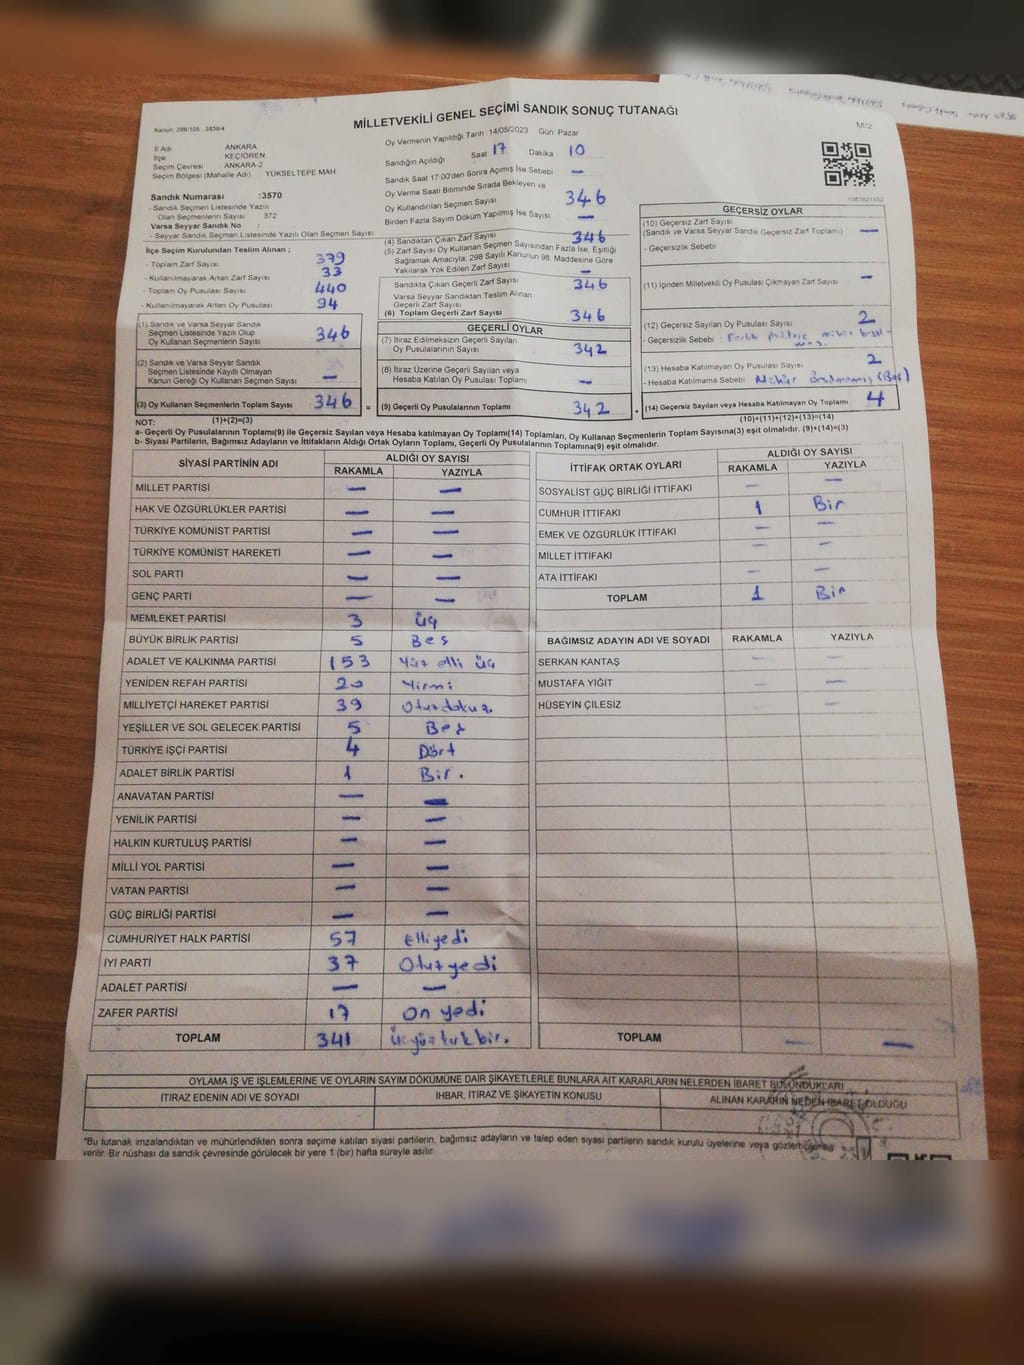 MİLLETVEKİLİ GENEL SEÇİMİ SANDIK SONUÇ TUTANAĞI
Kanun: 298/105 , 2839/4
M/2
İl Adı ANKARA
İlçe KEÇİÖREN
Seçim Çevresi ANKARA-2
Seçim Bölgesi (Mahalle Adı) YÜKSELTEPE MAH
Sandık Numarası :3570
- Sandık Seçmen Listesinde Yazılı
Olan Seçmenlerin Sayısı 372
Varsa Seyyar Sandık No :
- Seyyar Sandık Seçmen Listesinde Yazılı Olan Seçmen Sayısı:
İlçe Seçim Kurulundan Teslim Alınan ;
- Toplam Zarf Sayısı 379
- Kullanılmayarak Artan Zarf Sayısı 33
- Toplam Oy Pusulası Sayısı 440
- Kullanılmayarak Artan Oy Pusulası 94
(1) Sandık ve Varsa Seyyar Sandık
Seçmen Listesinde Yazılı Olup
Oy Kullanan Seçmenlerin Sayısı 346
(2) Sandık ve Varsa Seyyar Sandık
Seçmen Listesinde Kayıtlı Olmayan
Kanun Gereği Oy Kullanan Seçmen Sayısı —
(3) Oy Kullanan Seçmenlerin Toplam Sayısı 346 =
(1)+(2)=(3)
Oy Vermenin Yapıldığı Tarih : 14/05/2023 Gün: Pazar
Sandığın Açıldığı Saat 17 Dakika 10
Sandık Saat 17.00'den Sonra Açmış İse Sebebi —
Oy Verme Saati Bitiminde Sırada Bekleyen ve
Oy Kullandırılan Seçmen Sayısı 346
Birden Fazla Sayım Döküm Yapılmış İse Sayısı —
(4) Sandıktan Çıkan Zarf Sayısı 346
(5) Zarf Sayısı Oy Kullanan Seçmen Sayısından Fazla İse, Eşitliği
Sağlamak Amacıyla; 298 Sayılı Kanunun 98. Maddesine Göre
Yakılarak Yok Edilen Zarf Sayısı —
Sandıkta Çıkan Geçerli Zarf Sayısı 346
Varsa Seyyar Sandıktan Teslim Alınan
Geçerli Zarf Sayısı
(6) Toplam Geçerli Zarf Sayısı 346
GEÇERLİ OYLAR
(7) İtiraz Edilmeksizin Geçerli Sayılan
Oy Pusulalarının Sayısı 342
(8) İtiraz Üzerine Geçerli Sayılan veya
Hesaba Katılan Oy Pusulası Toplamı —
(9) Geçerli Oy Pusulalarının Toplamı 342 +
1085821532
GEÇERSİZ OYLAR
(10) Geçersiz Zarf Sayısı
(Sandık ve Varsa Seyyar Sandık Geçersiz Zarf Toplamı) —
- Geçersizlik Sebebi
(11) İçinden Milletvekili Oy Pusulası Çıkmayan Zarf Sayısı —
(12) Geçersiz Sayılan Oy Pusulası Sayısı 2
- Geçersizlik Sebebi :
(13) Hesaba Katılmayan Oy Pusulası Sayısı 2
- Hesaba Katılmama Sebebi : Mühür (Boş)
(14) Geçersiz Sayılan veya Hesaba Katılmayan Oy Toplamı 4
(10)+(11)+(12)+(13)=(14)
NOT:
a- Geçerli Oy Pusulalarının Toplamı(9) ile Geçersiz Sayılan veya Hesaba katılmayan Oy Toplamı(14) Toplamları, Oy Kullanan Seçmenlerin Toplam Sayısına(3) eşit olmalıdır. (9)+(14)=(3)
b- Siyasi Partilerin, Bağımsız Adayların ve İttifakların Aldığı Ortak Oyların Toplamı, Geçerli Oy Pusulalarının Toplamına(9) eşit olmalıdır.
SİYASİ PARTİNİN ADI ALDIĞI OY SAYISI
RAKAMLA YAZIYLA
MİLLET PARTİSİ — —
HAK VE ÖZGÜRLÜKLER PARTİSİ — —
TÜRKİYE KOMÜNİST PARTİSİ — —
TÜRKİYE KOMÜNİST HAREKETİ — —
SOL PARTİ — —
GENÇ PARTİ — —
MEMLEKET PARTİSİ 3 üç
BÜYÜK BİRLİK PARTİSİ 5 Beş
ADALET VE KALKINMA PARTİSİ 153 Yüz elli üç
YENİDEN REFAH PARTİSİ 20 Yirmi
MİLLİYETÇİ HAREKET PARTİSİ 39 Otuzdokuz
YEŞİLLER VE SOL GELECEK PARTİSİ 5 Beş
TÜRKİYE İŞÇİ PARTİSİ 4 Dört
ADALET BİRLİK PARTİSİ 1 Bir.
ANAVATAN PARTİSİ — —
YENİLİK PARTİSİ — —
HALKIN KURTULUŞ PARTİSİ — —
MİLLİ YOL PARTİSİ — —
VATAN PARTİSİ — —
GÜÇ BİRLİĞİ PARTİSİ — —
CUMHURİYET HALK PARTİSİ 57 Elliyedi
İYİ PARTİ 37 Otuzyedi
ADALET PARTİSİ — —
ZAFER PARTİSİ 17 on yedi
TOPLAM 341 üçyüzkırkbir.
İTTİFAK ORTAK OYLARI ALDIĞI OY SAYISI
RAKAMLA YAZIYLA
SOSYALİST GÜÇ BİRLİĞİ İTTİFAKI — —
CUMHUR İTTİFAKI 1 Bir
EMEK VE ÖZGÜRLÜK İTTİFAKI — —
MİLLET İTTİFAKI — —
ATA İTTİFAKI — —
TOPLAM 1 Bir
BAĞIMSIZ ADAYIN ADI VE SOYADI RAKAMLA YAZIYLA
SERKAN KANTAŞ — —
MUSTAFA YİĞİT — —
HÜSEYİN ÇİLESİZ — —
TOPLAM — —
OYLAMA İŞ VE İŞLEMLERİNE VE OYLARIN SAYIM DÖKÜMÜNE DAİR ŞİKAYETLERLE BUNLARA AİT KARARLARIN NELERDEN İBARET BULUNDUKLARI
İTİRAZ EDENİN ADI VE SOYADI İHBAR, İTİRAZ VE ŞİKAYETİN KONUSU ALINAN KARARIN NEDEN İBARET OLDUĞU
*Bu tutanak imzalandıktan ve mühürlendikten sonra seçime katılan siyasi partilerin, bağımsız adayların ve talep eden siyasi partilerin sandık kurulu üyelerine veya gözlemcilerine
verilir. Bir nüshası da sandık çevresinde görülecek bir yere 1 (bir) hafta süreyle asılır.